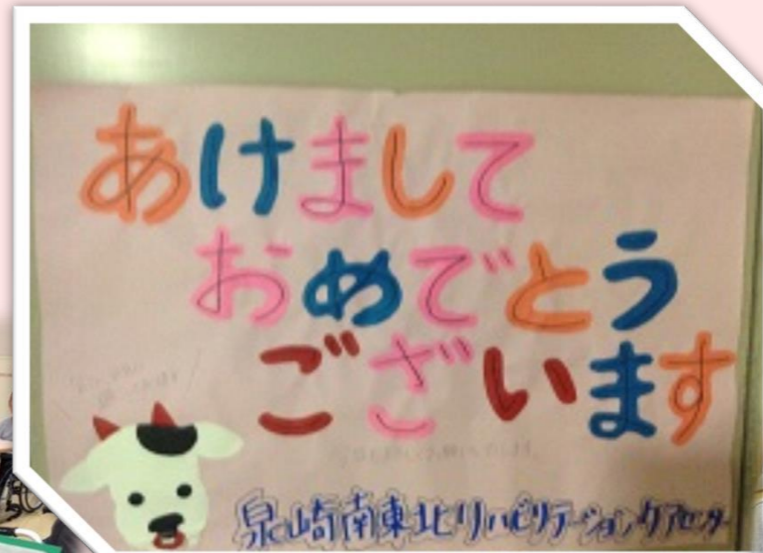 あけまして
おめでとう
ございます
泉崎南東北リハビリテーションケアセンター